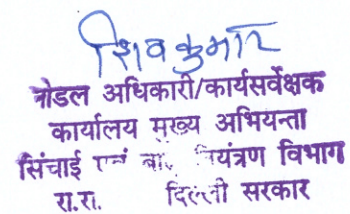 शिव कुमार
नोडल अधिकारी/कार्यसर्वेक्षक
कार्यालय मुख्य अभियन्ता
सिंचाई एवं नियंत्रण विभाग
रा.रा. दिल्ली सरकार